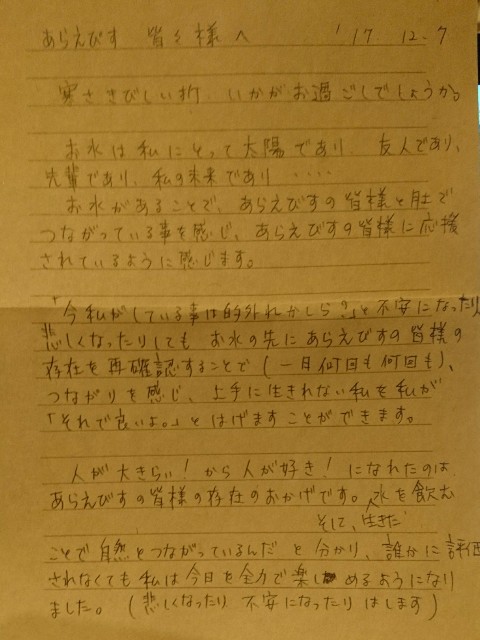 あらえびす 皆々様へ '17 12-7
寒さきびしい折、いかがお過ごしでしょうか。
お水は私にとって太陽であり、友人であり、
先輩であり、私の未来であり・・・・
お水があることで、あらえびすの皆様と肚で
つながっている事を感じ、あらえびすの皆様に応援
されているように感じます。
「今私がしている事は的外れかしら?」と不安になったり
悲しくなったりしても お水の先にあらえびすの皆様の
存在を再確認することで(一日何回も何回も)、
つながりを感じ、上手に生きれない私を私が
「それで良いよ。」とはげますことができます。
人が大きらい!から人が好き!になれたのは
あらえびすの皆様の存在のおかげです。水を飲む
そして、生きた
ことで自然とつながっているんだ と分かり、誰かに評価
されなくても私は今日を全力で楽しめるようになり
ました。(悲しくなったり 不安になったり はします)